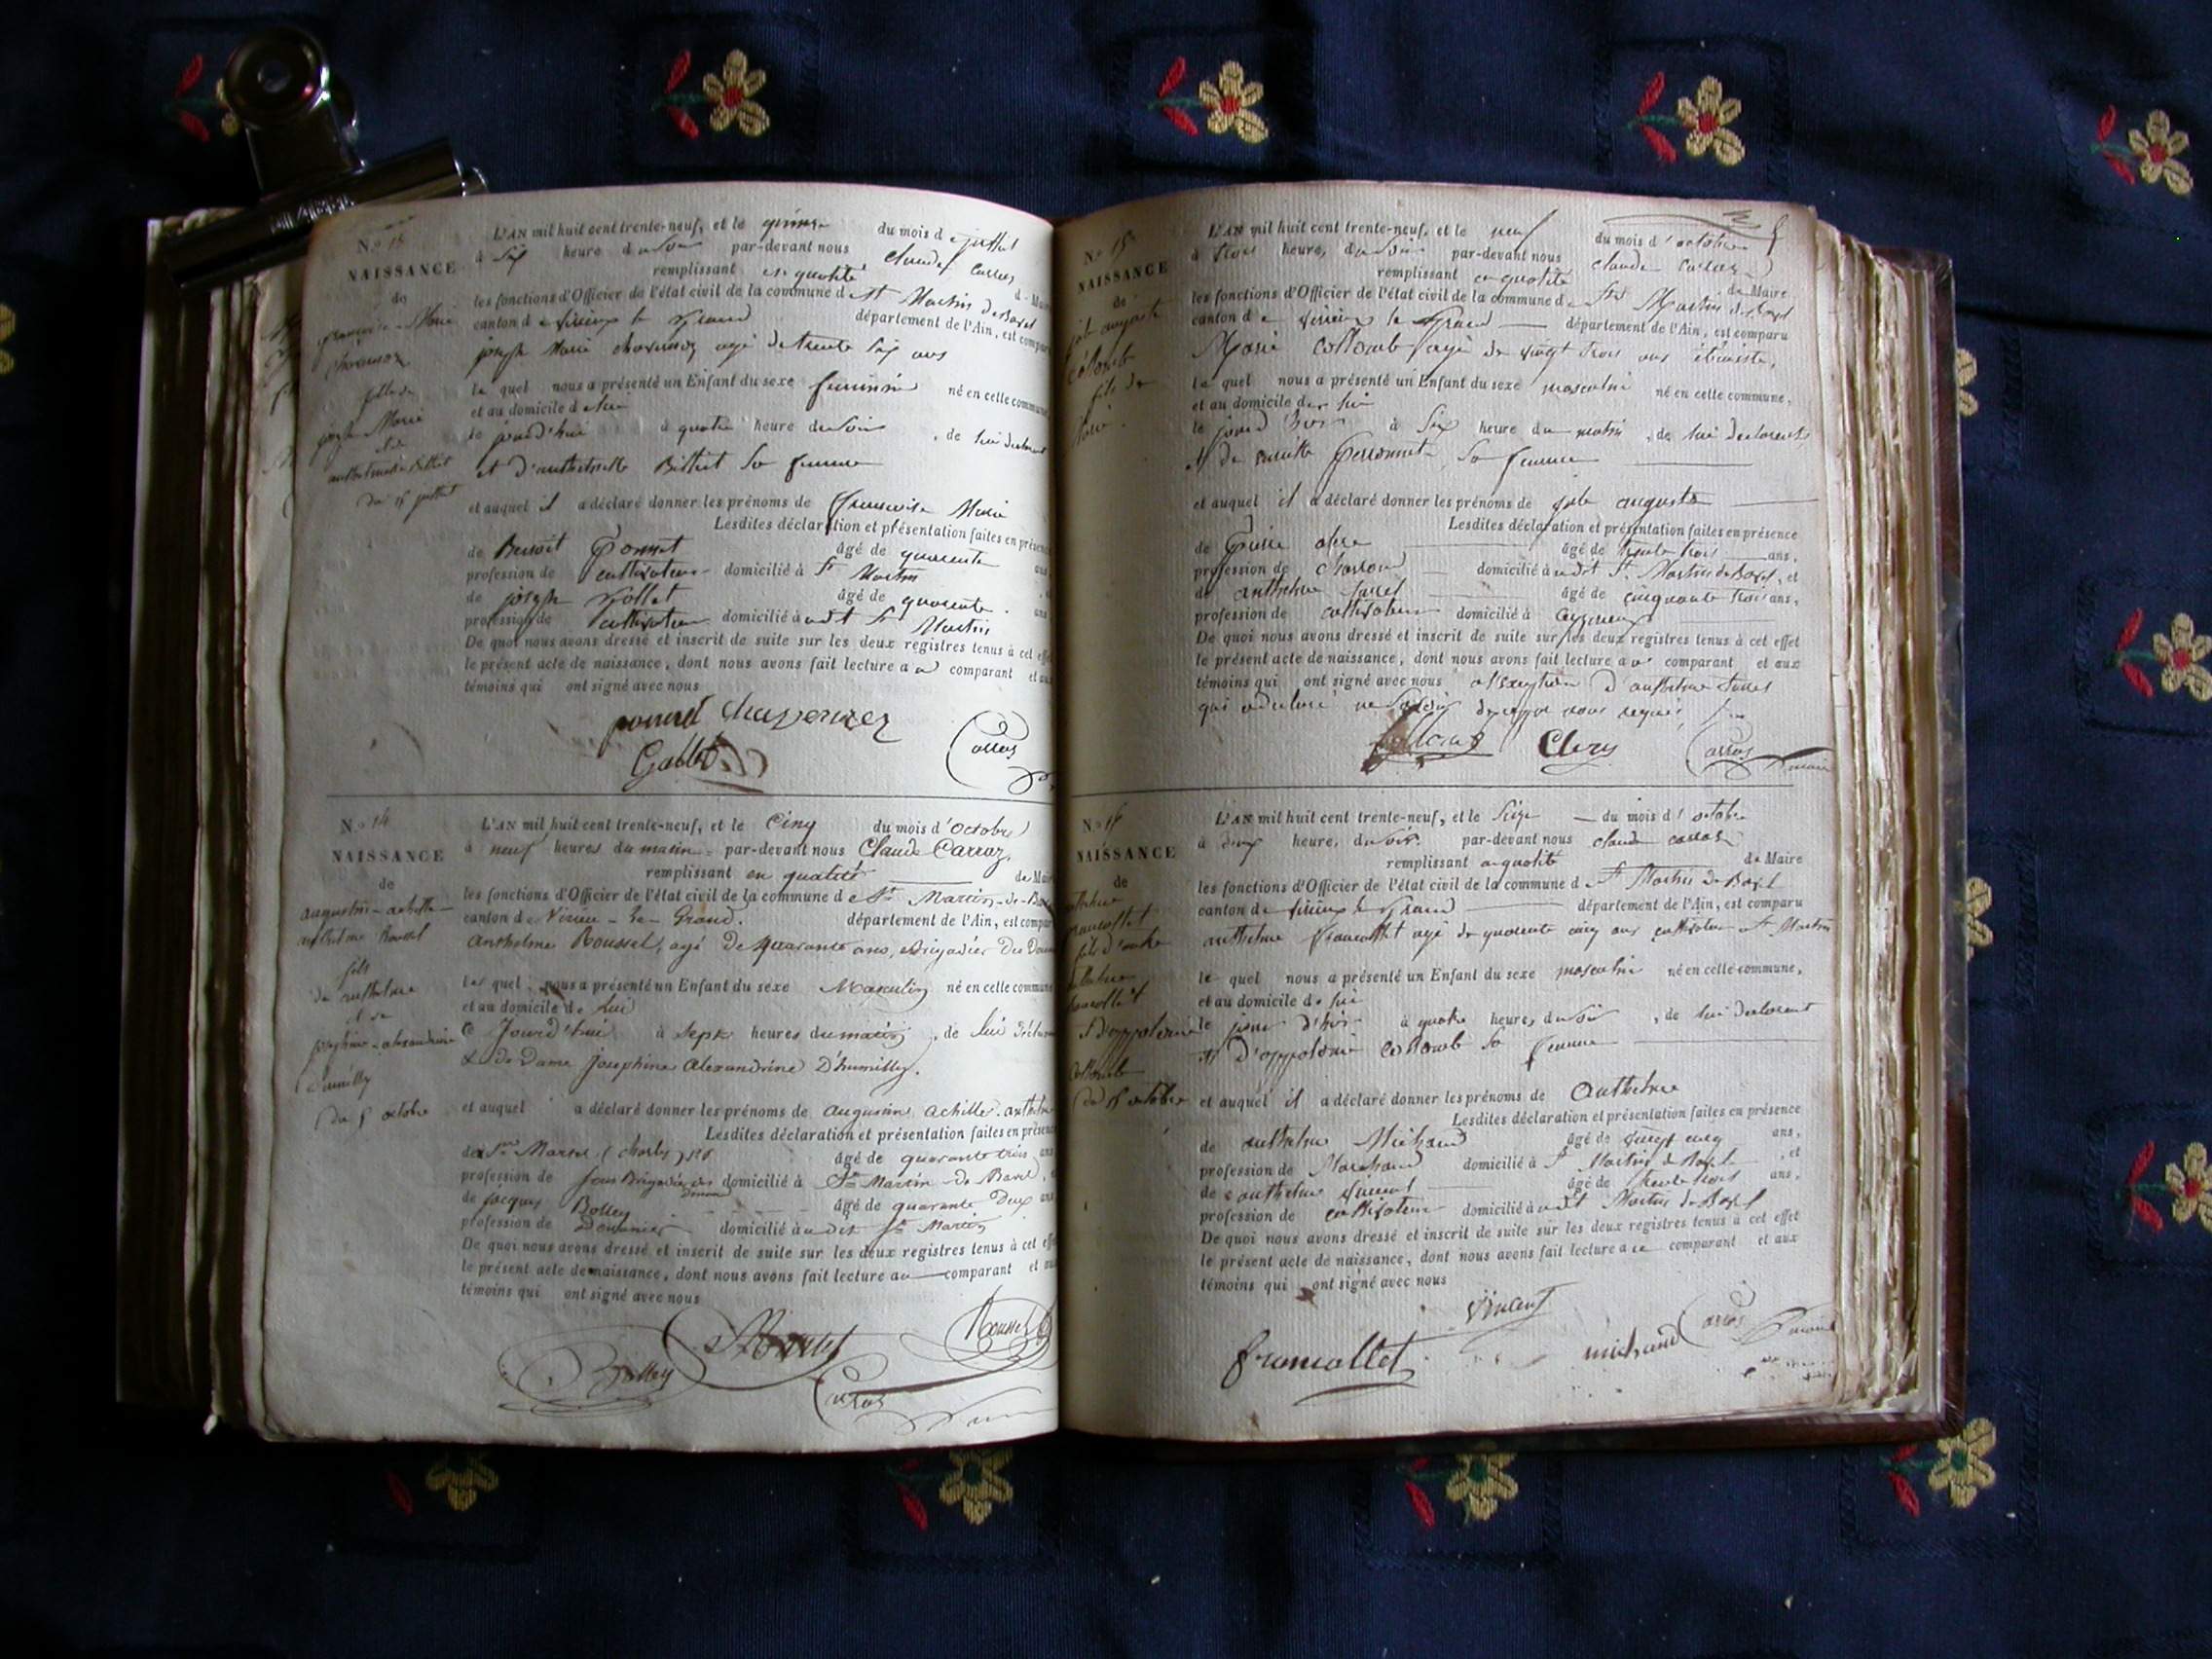 NAISSANCE
de
fille de
joseph Marie
du 15 juillet
L'AN mil huit cent trente-neuf, et le quinze du mois de juillet
à six heure du soir par-devant nous claude Carraz
remplissant en qualité de Maire
les fonctions d'Officier de l'état civil de la commune de St Martin de Bavel
canton de virieux le grand département de l'Ain, est comparu
joseph Marie chavernoz agé de trente six ans
le quel nous a présenté un Enfant du sexe feminin né en celle commune
et au domicile de lui
le jourd'hui à quatre heure du soir, de lui déclarant
et d'anthelmette Billiet sa femme
et auquel il a déclaré donner les prénoms de francoise Marie
Lesdites déclaration et présentation faites en présence
de Benoit Ponnet âgé de quarente ans
profession de cultivateur domicilié à St Martin
de joseph Gollet âgé de quarente ans
profession de cultivateur domicilié à udt St Martin
De quoi nous avons dressé et inscrit de suite sur les deux registres tenus à cet effet
le présent acte de naissance, dont nous avons fait lecture a u comparant et aux
témoins qui ont signé avec nous
ponnet chavernoz
Gollet Carraz
N.o 14
NAISSANCE
de
augustin-achille-
anthelme Roussel
fils
de anthelme
et de
josephine-alexandrine
d'humilly
du 5 octobre
L'AN mil huit cent trente-neuf, et le Cinq du mois d'Octobre
à neuf heures du matin par-devant nous Claude Carraz,
remplissant en qualité de Maire
les fonctions d'Officier de l'état civil de la commune de St Martin-de-Bavel
canton de Virieu-le-Grand. département de l'Ain, est comparu
Anthelme Roussel, agé de quarante ans, Brigadier des Douanes
le quel nous a présenté un Enfant du sexe Masculin né en celle commune
et au domicile de Lui
Ce Jourd'hui à Sept heures du matin, de lui déclarant
& de Dame Josephine Alexandrine D'humilly.
et auquel a déclaré donner les prénoms de augustin, achille, anthelme
Lesdites déclaration et présentation faites en présence
de âgé de quarante trois ans
profession de sous Brigadier des douanes domicilié à St Martin-de-Bavel,
de jacques Bolley âgé de quarante Deux ans
profession de Douanier domicilié à udit St Martin
De quoi nous avons dressé et inscrit de suite sur les deux registres tenus à cet effet
le présent acte de naissance, dont nous avons fait lecture au comparant et aux
témoins qui ont signé avec nous
Roussel
Bolley
Carraz
N.o 15
NAISSANCE
de
jule auguste
Collomb
fils de
L'AN mil huit cent trente-neuf, et le neuf du mois d'octobre
à trois heure, du soir par-devant nous claude Carraz
remplissant en qualité de Maire
les fonctions d'Officier de l'état civil de la commune de St Martin de Bavel
canton de virieux le grand département de l'Ain, est comparu
Marie Collomb agé de vingt trois ans ébeniste,
le quel nous a présenté un Enfant du sexe masculin né en celle commune,
et au domicile de lui
le jourd'hui à six heure du matin, de lui déclarant
et de sa femme
et auquel il a déclaré donner les prénoms de jule auguste
Lesdites déclaration et présentation faites en présence
de âgé de trente trois ans,
profession de charron domicilié à udit St Martin de Bavel, et
de anthelme âgé de cinquante trois ans,
profession de cultivateur domicilié à
De quoi nous avons dressé et inscrit de suite sur les deux registres tenus à cet effet
le présent acte de naissance, dont nous avons fait lecture a u comparant et aux
témoins qui ont signé avec nous
Carraz maire
N.o 16
NAISSANCE
de
anthelme
francollet
collomb
du 16 octobre
L'AN mil huit cent trente-neuf, et le Seize du mois d'octobre
à heure, du soir par-devant nous claude carraz
remplissant en qualité de Maire
les fonctions d'Officier de l'état civil de la commune de St Martin de Bavel
canton de virieux le grand département de l'Ain, est comparu
anthelme francollet agé de quarente cinq ans cultivateur St Martin
le quel nous a présenté un Enfant du sexe masculin né en celle commune,
et au domicile de lui
le à quatre heure, du soir, de lui déclarant
et d'appolonie Collomb sa femme
et auquel il a déclaré donner les prénoms de Anthelme
Lesdites déclaration et présentation faites en présence
de anthelme Michaud âgé de vingt cinq ans,
profession de Marchand domicilié à St Martin de Bavel, et
de anthelme vincent âgé de trente trois ans,
profession de cultivateur domicilié à udt Martin de Bavel
De quoi nous avons dressé et inscrit de suite sur les deux registres tenus à cet effet
le présent acte de naissance, dont nous avons fait lecture a u comparant et aux
témoins qui ont signé avec nous
vincent
francollet michaud Carraz maire